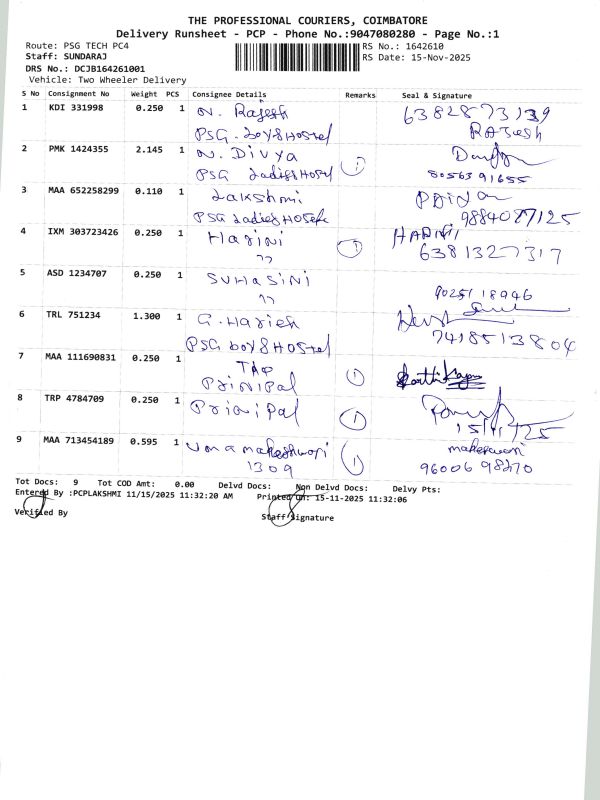 THE PROFESSIONAL COURIERS, COIMBATORE
Delivery Runsheet - PCP - Phone No.:9047080280 - Page No.:1
Route: PSG TECH PC4 RS No.: 1642610
Staff: SUNDARAJ RS Date: 15-Nov-2025
DRS No.: DCJB164261001
Vehicle: Two Wheeler Delivery
S No Consignment No Weight PCS Consignee Details Remarks Seal & Signature
1 KDI 331998 0.250 1 N. Rajesh 6382873139
PSG. boys Hostel RAJesh
2 PMK 1424355 2.145 1 N. DIVYA 1
PSG Ladies Hostel 8056391655
3 MAA 652258299 0.110 1 Lakshmi
PSG Ladies Hostel 9884077125
4 IXM 303723426 0.250 1 Harini 1 HARINI
" 6381327317
5 ASD 1234707 0.250 1 SUHASINI
" 9025118946
6 TRL 751234 1.300 1 G. Harish
PSG boys Hostel 7418513804
7 MAA 111690831 0.250 1 The 1 Karthikayan
Prinipal
8 TRP 4784709 0.250 1 Prinipal 1
15/11/25
9 MAA 713454189 0.595 1 Umamaheshwari 1 maheswari
1309 9600698270
Tot Docs: 9 Tot COD Amt: 0.00 Delvd Docs: Non Delvd Docs: Delvy Pts:
Entered By :PCPLAKSHMI 11/15/2025 11:32:20 AM Printed On: 15-11-2025 11:32:06
Verified By Staff Signature